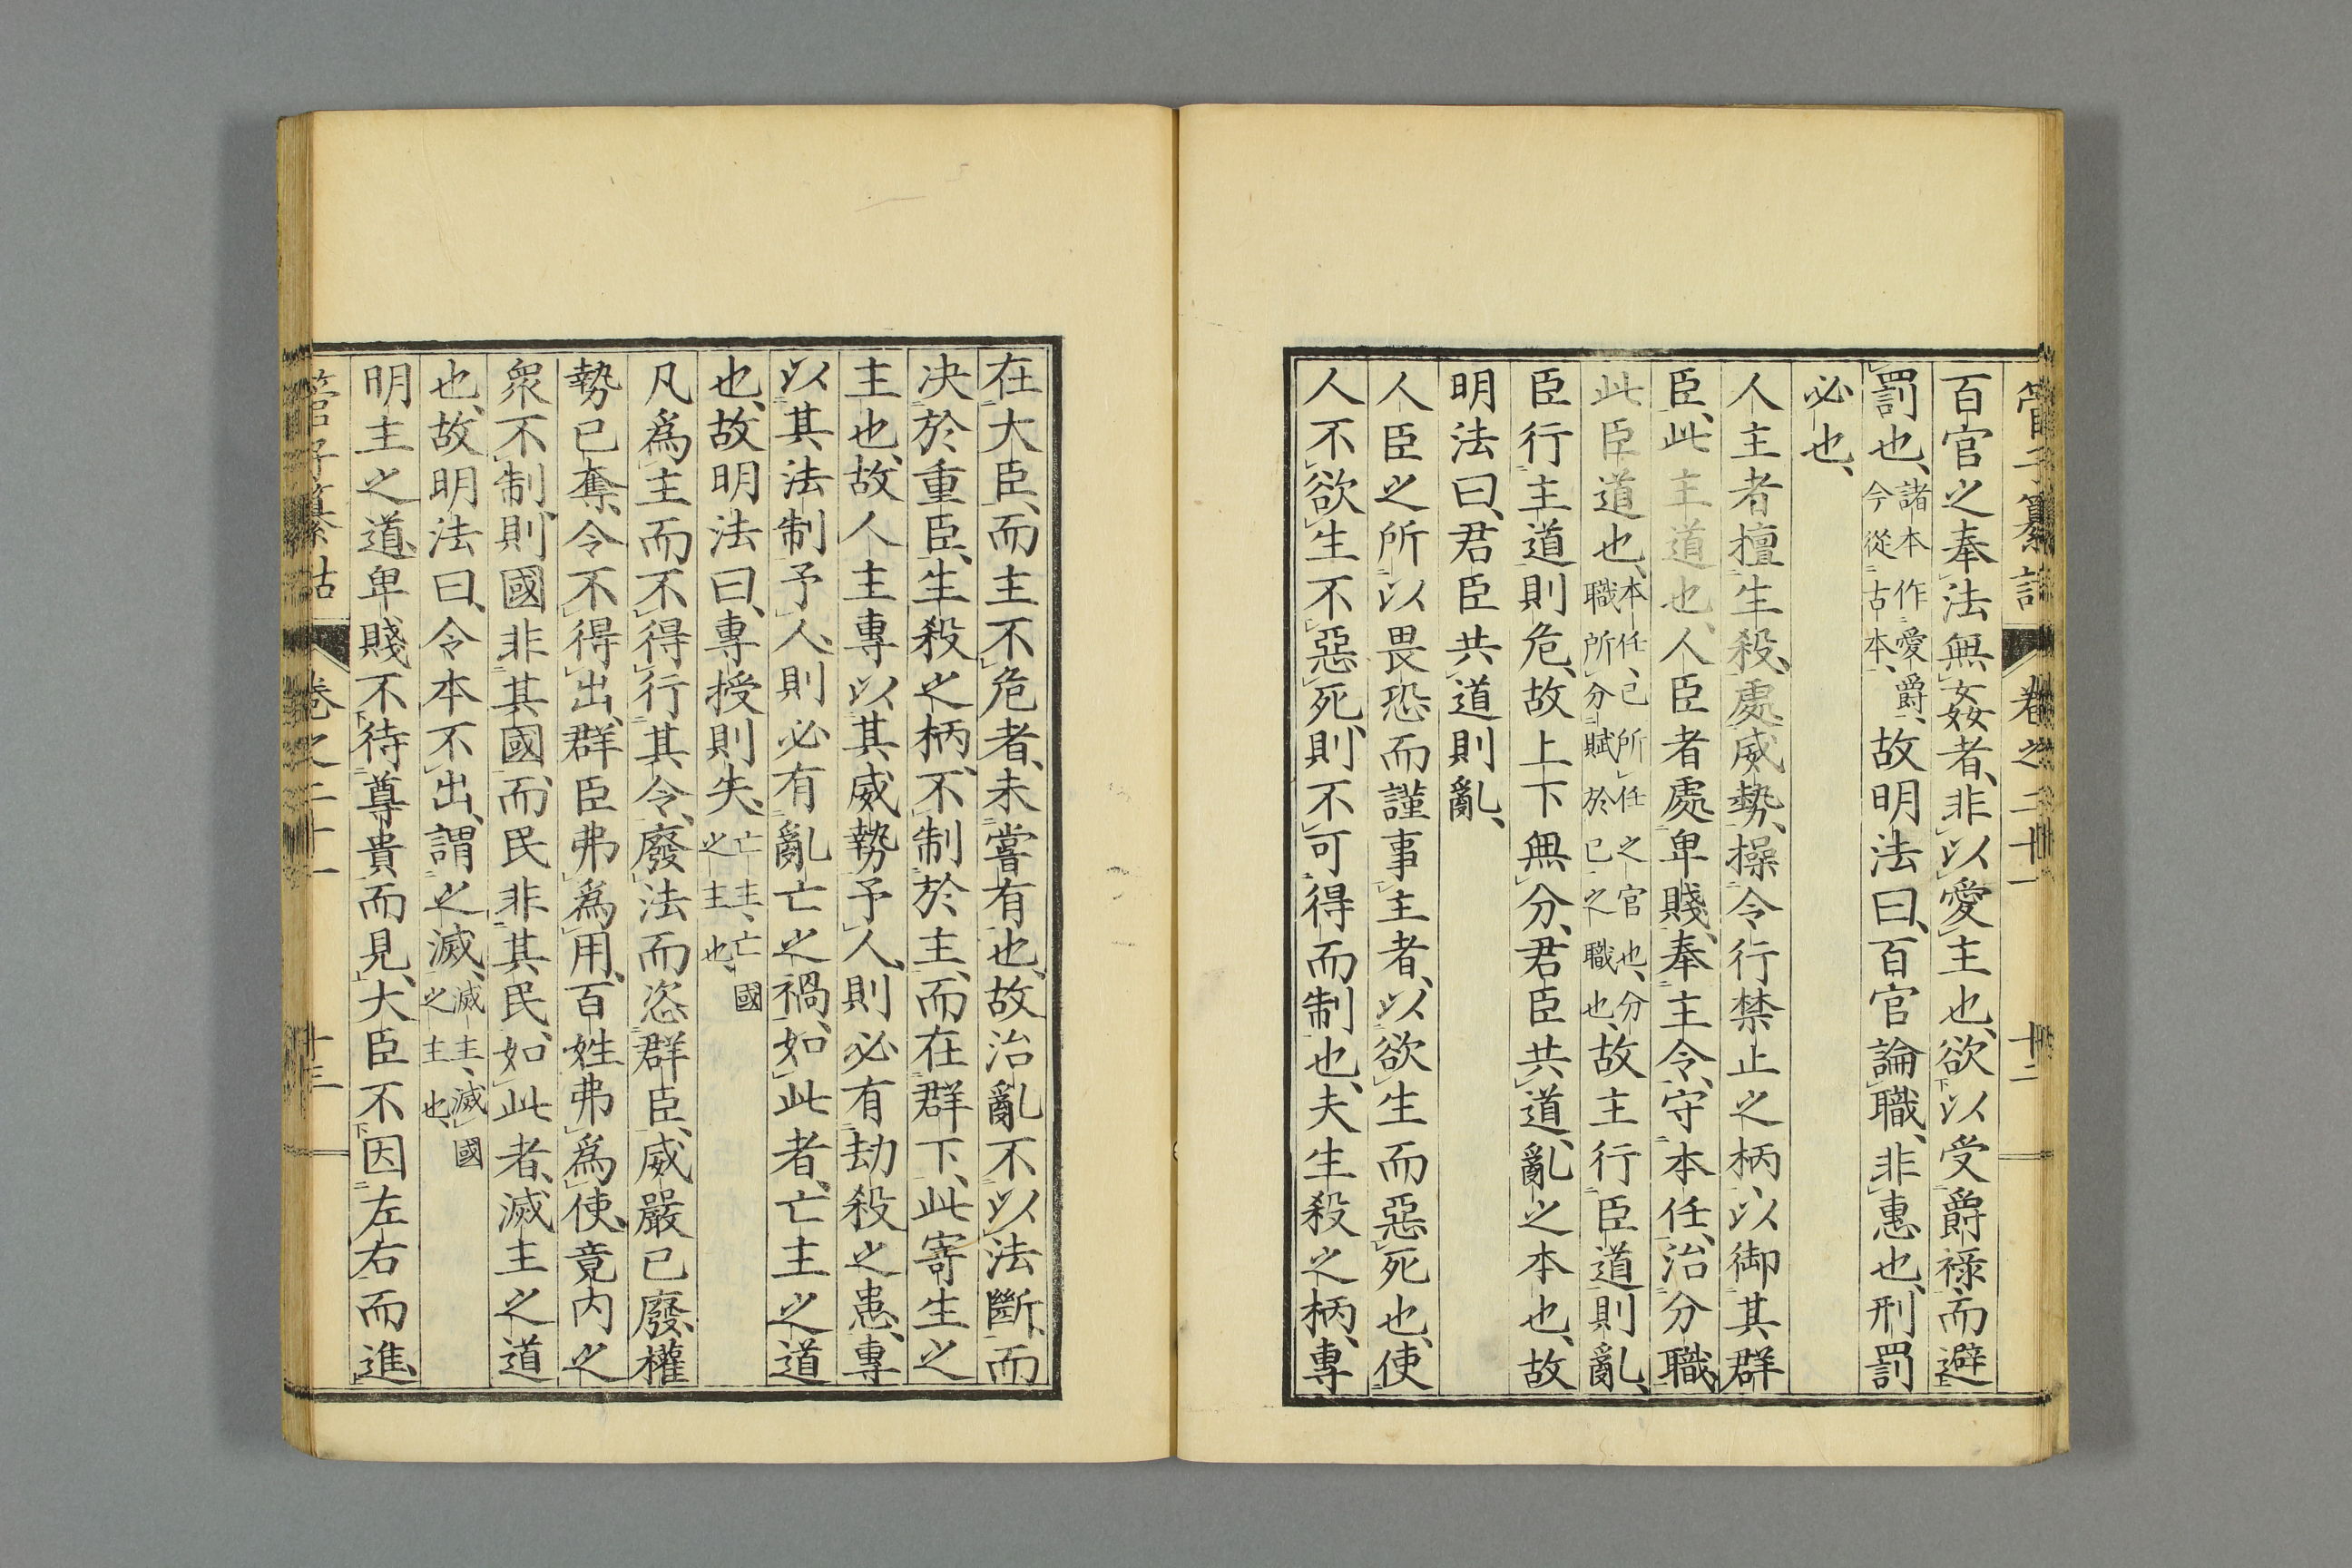 管子纂詁 卷之二十一 十二
百官之奉法無姦者、非以愛主也、欲以受爵祿而避
罰也、諸本作愛爵、今從古本、故明法曰、百官論職、非惠也、刑罰
必也、
人主者擅生殺、處威勢、操令行禁止之柄、以御其群
臣、此主道也、人臣者處卑賤、奉主令、守本任、治分職、
此臣道也、本任、己所任之官也、分職所分賦於己之職也、故主行臣道則亂、
臣行主道則危、故上下無分、君臣共道、亂之本也、故
明法曰、君臣共道則亂、
人臣之所以畏恐而謹事主者、以欲生而惡死也、使
人不欲生不惡死、則不可得而制也、夫生殺之柄、專
在大臣、而主不危者、未嘗有也、故治亂不以法斷、而
決於重臣、生殺之柄、不制於主、而在群下、此寄生之
主也、故人主專以其威勢予人、則必有劫殺之患、專
以其法制予人、則必有亂亡之禍、如此者、亡主之道
也、故明法曰、專授則失、亡主、亡國之主也、
凡爲主而不得行其令、廢法而恣群臣、威嚴已廢、權
勢已奪、令不得出、群臣弗爲用、百姓弗爲使、竟内之
衆不制、則國非其國、而民非其民、如此者、滅主之道
也、故明法曰、令本不出、謂之滅、滅主、滅國之主也、
明主之道、卑賤不待尊貴而見、大臣不因左右而進、
管子纂詁 卷之二十一 十三